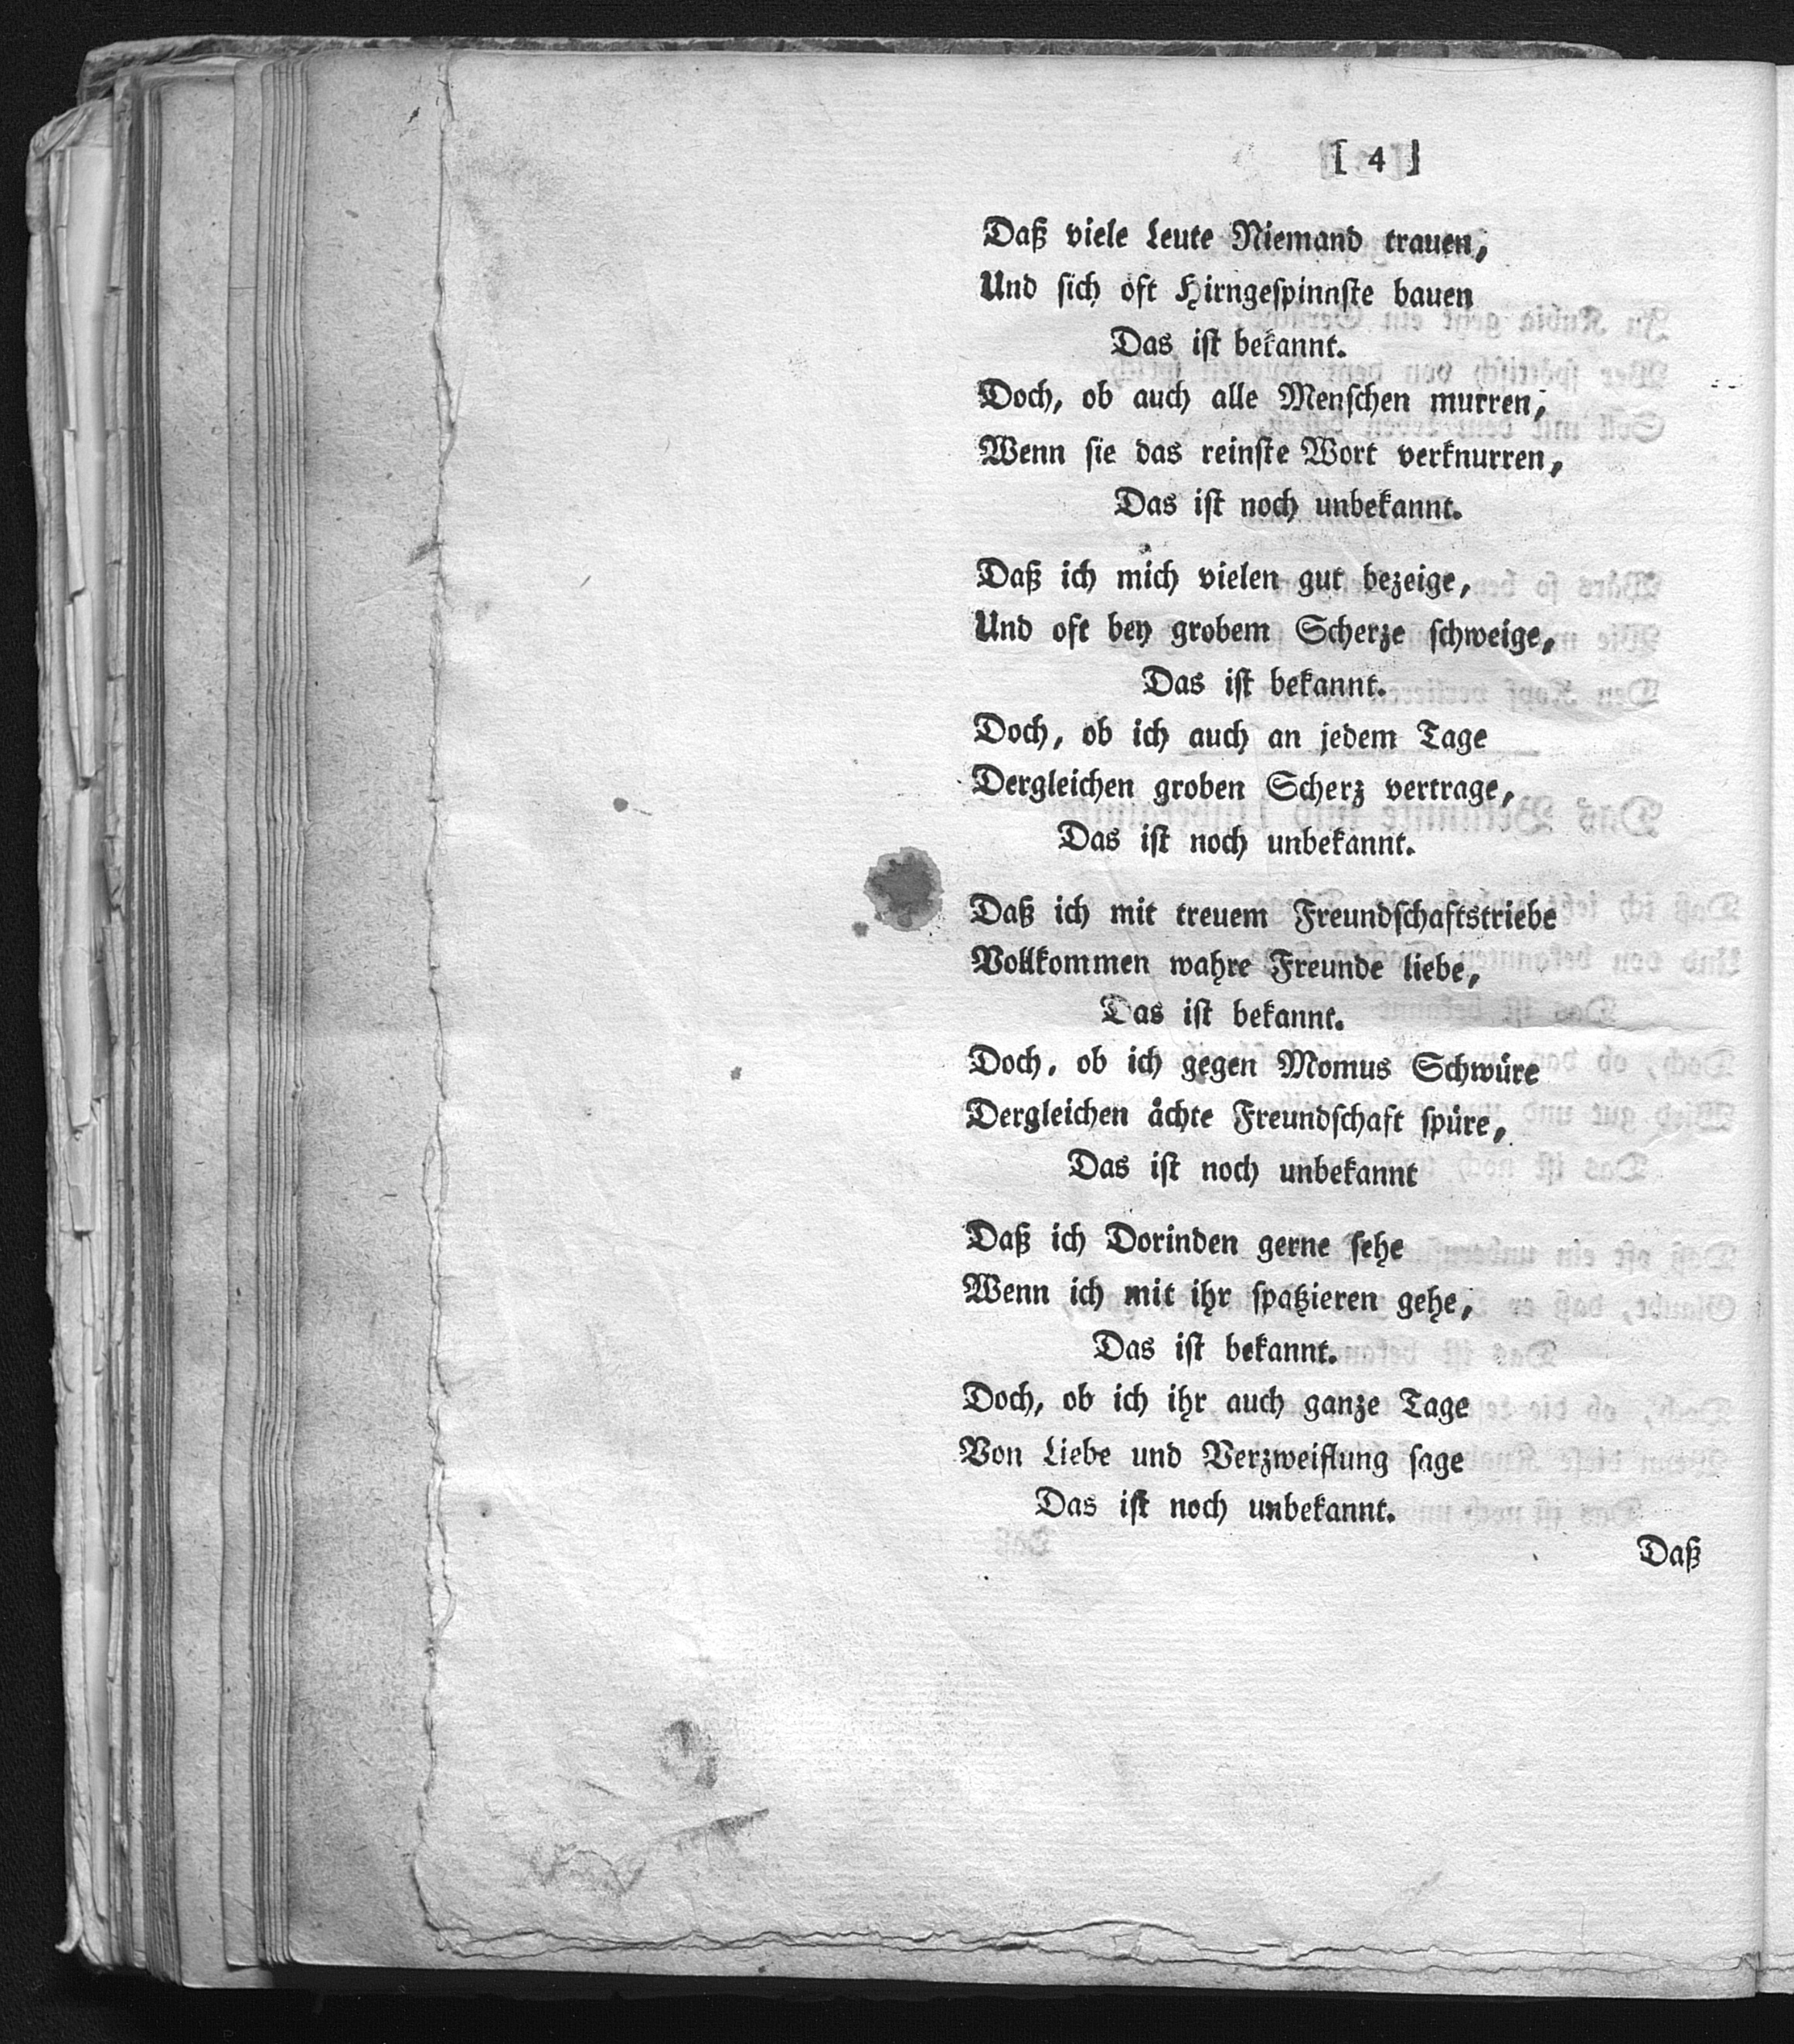 [ 4 ]
Daß viele Leute Niemand trauen,
Und sich oft Hirngespinnste bauen
Das ist bekannt.
Doch, ob auch alle Menschen murren,
Wenn sie das reinste Wort verknurren,
Das ist noch unbekannt.
Daß ich mich vielen gut bezeige,
Und oft bey grobem Scherze schweige,
Das ist bekannt.
Doch, ob ich auch an jedem Tage
Dergleichen groben Scherz vertrage,
Das ist noch unbekannt.
Daß ich mit treuem Freundschaftstriebe
Vollkommen wahre Freunde liebe,
Das ist bekannt.
Doch, ob ich gegen Momus Schwüre
Dergleichen ächte Freundschaft spüre,
Das ist noch unbekannt
Daß ich Dorinden gerne sehe
Wenn ich mit ihr spatzieren gehe,
Das ist bekannt.
Doch, ob ich ihr auch ganze Tage
Von Liebe und Verzweiflung sage
Das ist noch unbekannt.
Daß